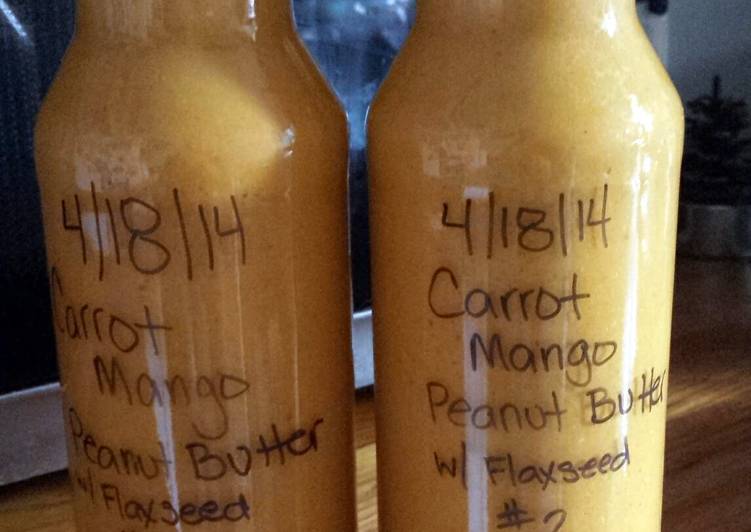 4/18/14
Carrot
Mango
Peanut Butter
w/ Flaxseed
4/18/14
Carrot
Mango
Peanut Butter
w/ Flaxseed
#2